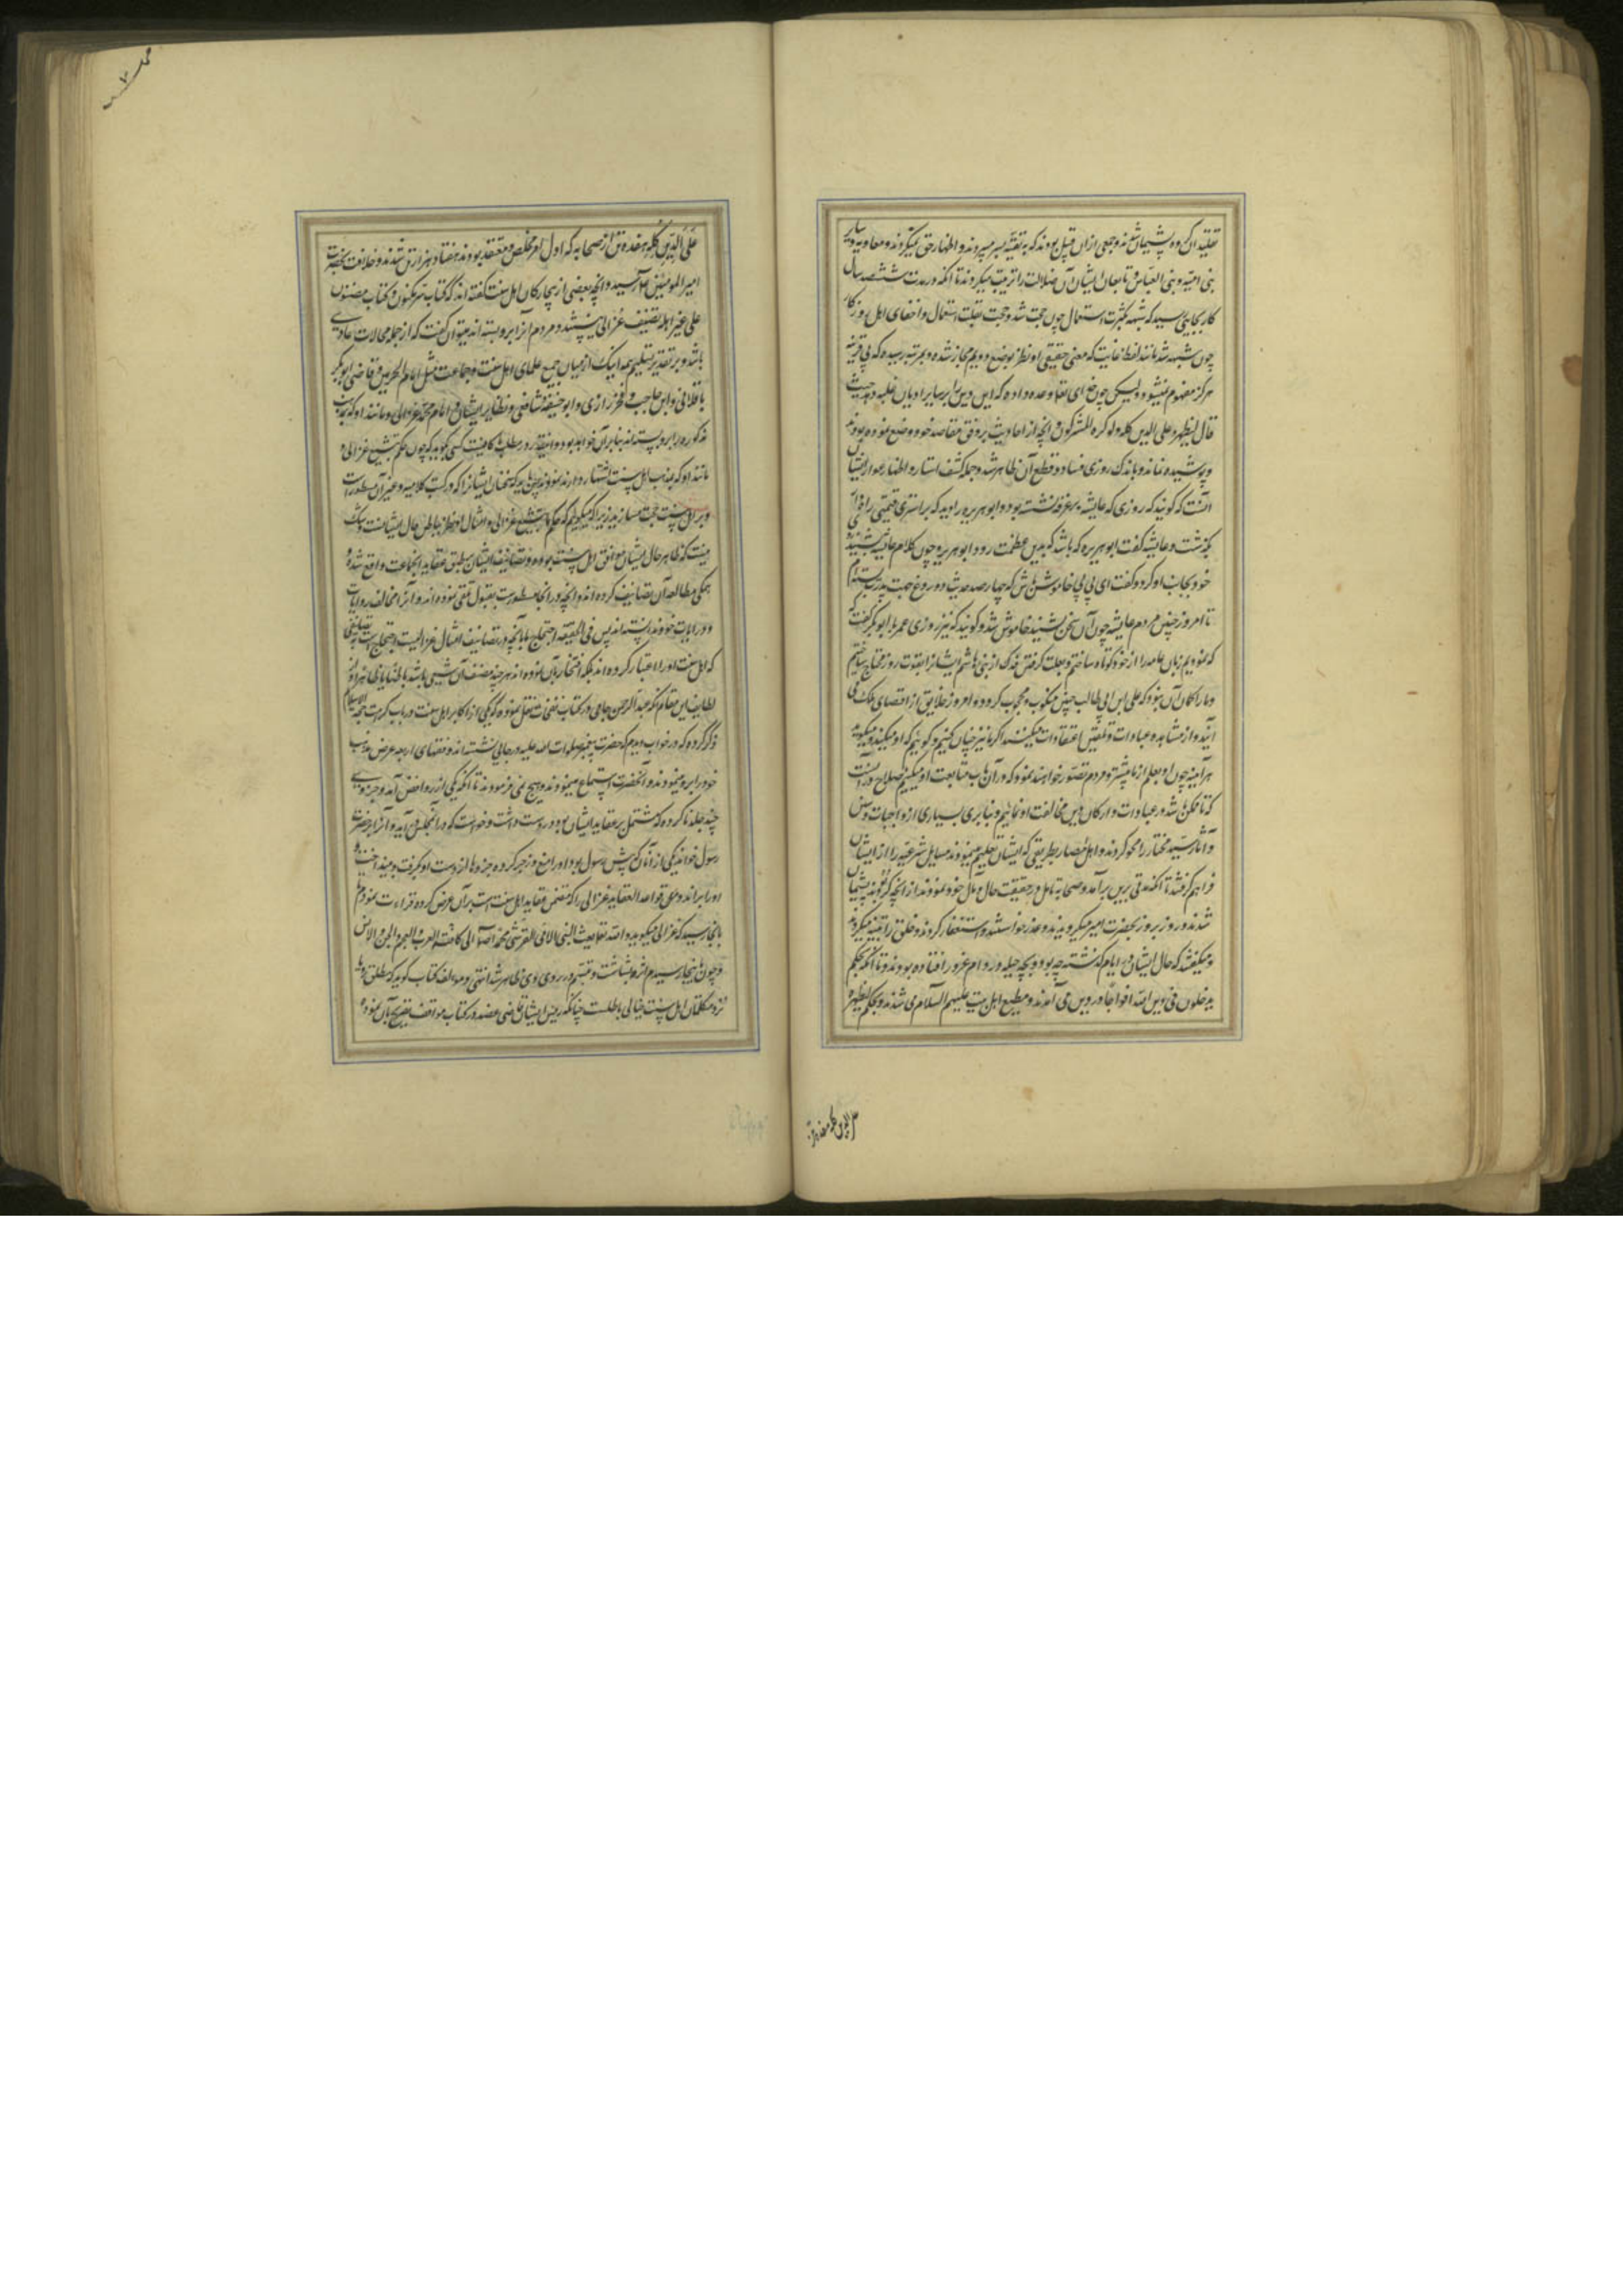 تقلید آن کرده پشیمان شدند و جمعی ازان قبیل بودند که به تقیه بسر میبردند و اظهار حق نمیکردند و معاویه و سایر
بنی امیه و بنی العباس و تابعان ایشان آن ضلالت را تربیت میکردند تا آنکه در مدت ششصد سال
کار بجایی رسید که شبهه بکثرت استعمال چون حجت شد و حجت بقلت استعمال و اخفای اهل روزکار
چون شبهه شد مانند لفظ غایت که معنی حقیقی او نظر بوضع دویم مجاز شده و بمرتبه رسیده که بی قرینه
هرکز مفهوم نمیشود ولیکن چون خدای تعالی وعده داده که این دین را بر سایر ادیان غلبه دهد حیث
قال لیظهره علی الدین کله ولو کره المشرکون و آنچه از احادیث بر وفق مقاصد خود وضع نموده بودند
پوشیده نماند و باندک روزی فساد و قطع آن ظاهر شد و جمله کشف استار و اظهار عوار ایشان
آنست که کویند که روزی که عایشه بر غرفه نشسته بود و ابو هریره را دید که بر استری قیمتی
بکذشت و عایشه کفت ابو هریره که باشد که بدین عظمت رود ابو هریره چون کلام عایشه شنید
خود بجانب او کرد و کفت ای بی بی خاموش باش که چهار صد حدیث دروغ جهت پدرت بسته ام
تا امروز چنین مردم عایشه چون آن سخن شنید خاموش شد و کویند که نیز روزی عمر با ابو بکر کفت که
که نمودیم زبان عامه را از خود کوتاه ساختیم و بعلت کرفتن فدک از بنی هاشم ایشانرا بقوت روز محتاج ساختیم
و ما را کمان آن بود که علی ابن ابی طالب چنین منکوب و محجوب کردد و امروز خلایق از اقصای ملک می
آیند و از مشاهده عبادات و تلقین اعتقادات میکنند اکر ما نیز چنان کنیم و کوییم که او میکند و میکوید
هر آینه چون او بعلم از ما پیشتر و مردم تصور خواهند نمود که در آن باب متابعت او میکنیم صلاح در آنست
که تا ممکن باشد در عبادات و ارکان دین مخالفت او نمائیم و بنا برین بسیاری از واجبات و سنن
و آثار سید مختار را محو کردند و اهل امصار بطریقی که ایشان تعلیم مینمودند مسایل شرعیه را از ایشان
فرا هم کرفتند تا آنکه مدتی برین برآمد و صحابه تامل در حقیقت حال و مآل خود نمودند از آنچه کردند پشیمان
شدند و روز بروز بحضرت امیر میکرویدند و عذر خواستند و استغفار کردند و خلق را تنبیه میکردند
و میکفتند که حال ایشان در ایام کذشته چه بود و بچه حیله در دام غرور افتاده بودند و تا آنکه بحکم
یدخلون فی دین الله افواجا در دین می آمدند و مطیع اهل بیت علیهم السلام می شدند و بحکم لیظهره
علی الدین کله هفده تن از صحابه که اول امر مخلص و معتقد بودند هفتاد هزار تن شدند و خلافت بحضرت
امیر المومنین رسید و آنچه بعضی از بیچارکان اهل سنت کفته اند که کتاب سر مکنون و کتاب مضنون
علی غیر اهله تصنیف غزالی نیستند و مردم آنرا برو بسته اند میتوان کفت که از جمله محالات عادی
باشد و بر تقدیر تسلیم همه اینک از میان جمیع علمای اهل سنت و جماعت مثل امام الحرمین و قاضی ابو بکر
باقلانی و ابن حاجب و فخر رازی و ابو حنیفه و شافعی و نظایر ایشان امام محمد غزالی و مانند او که کتاب
مذکوره را برو بسته اند بنا بر آن خواهد بود و اینقدر در مطلب ما کافیست کسی نکوید که چون حکم بتشیع غزالی و
مانند او که بمذهب اهل سنت اشتهار دارند نمودند پس باید که سخنان ایشانرا که در کتب کلامیه و غیر آن مسطور است
بر اهل سنت حجت مسازید زیرا که میکوییم که حکم ما بتشیع غزالی و امثال او نظر بباطن حال ایشانست و شک
نیست که ظاهر حال ایشان موافق اهل سنت بوده و تصانیف ایشان مطابق عقاید آنجماعت واقع شده و
همکی مطالعه آن تصانیف کرده اند و آنچه در آنجا مسطورست بقبول تلقی نموده اند و آنرا مخالف روایات
و درایات خود ندانسته اند پس فی الحقیقه احتجاج ما بآنچه در تصانیف امثال غزالیست احتجاج است به تصانیفی
که اهل سنت او را اعتبار کرده اند بلکه افتخار بآن نموده اند هر چند مصنف آن شیعی باشد
لطایف این مقام آنکه عبد الرحمن جامی در کتاب نفحات نقل نموده که یکی از اکابر اهل سنت در باب کرامت حجه الاسلام
ذکر کرده که در خواب دیدم که حضرت پیغمبر صلوات الله علیه در جایی نشسته اند و فقهای اربعه عرض مذهب
خود را برو مینمودند و آنحضرت استماع مینمودند و هیچ نمی فرمودند تا آنکه یکی از روافض آمد و جزوی
چند جلد ناکرده که مشتمل بر عقاید ایشان بود در دست داشت و خواست که در آن مجلس در آید و آنرا بر حضرت
رسول خواند یکی از آنان که پیش رسول بود او را منع و زجر کرده جزوها از دست او بکرفت و بینداخت و
او را براند و من قواعد العقاید غزالی را که متضمن عقاید اهل سنت است بر آن عرض کرده قراءت نمودم
تا بآنجا رسید که غزالی میکوید و انه تعالی بعث النبی الامی القرشی محمدا الی کافة العرب و العجم و الجن و الانس
و چون باینجا رسیدم اثر بشاشت و تبسم در روی وی ظاهر شد انتهی و مولف کتاب کوید که
نزد متکلمان اهل سنت خیالی باطلست چنانکه رئیس ایشان قاضی عضد در کتاب مواقف تصریح بآن نموده